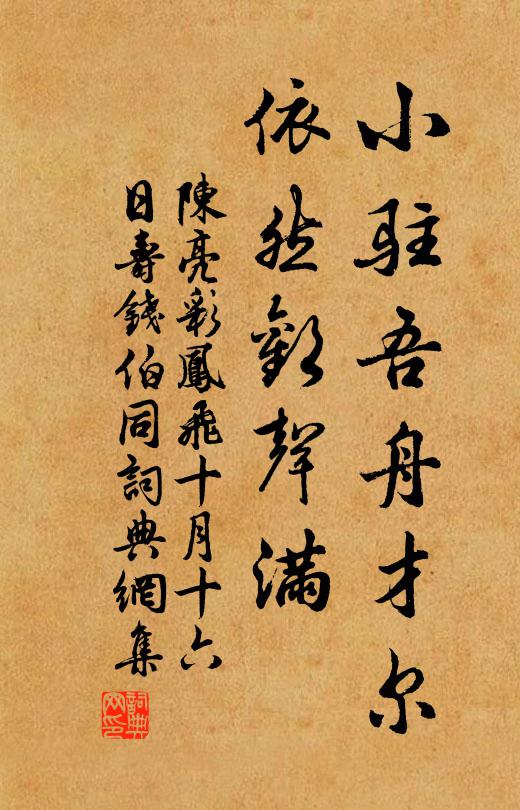 小駐吾舟才尔
依然歡聲滿
陳亮彩鳳飛十月十六
日壽錢伯同詞典網集
詞典网印